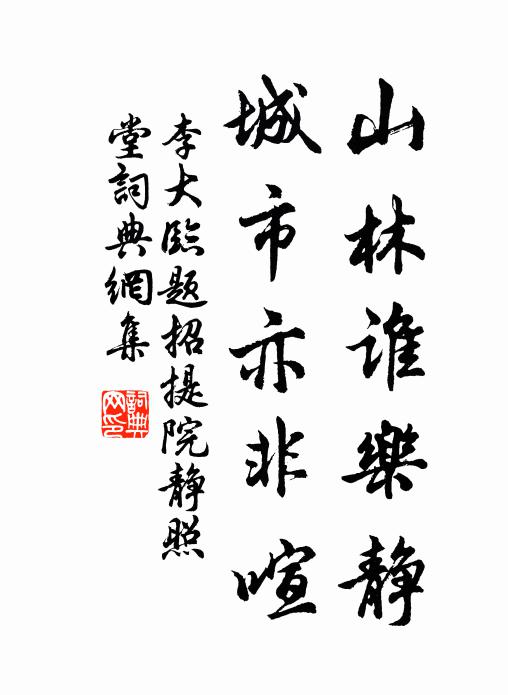 山林誰樂静
城市亦非喧
李大臨题招提院静照
堂詞典網集
詞典网印